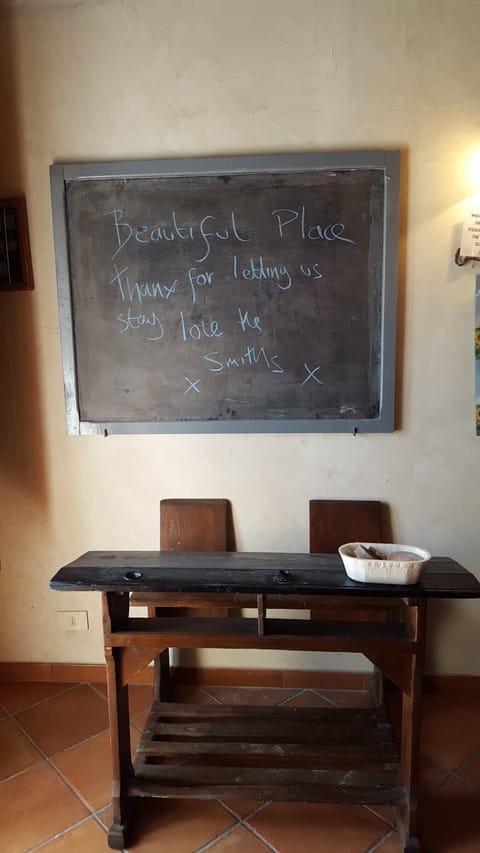 Beautiful Place
thanx for letting us
stay love the
Smiths
x x